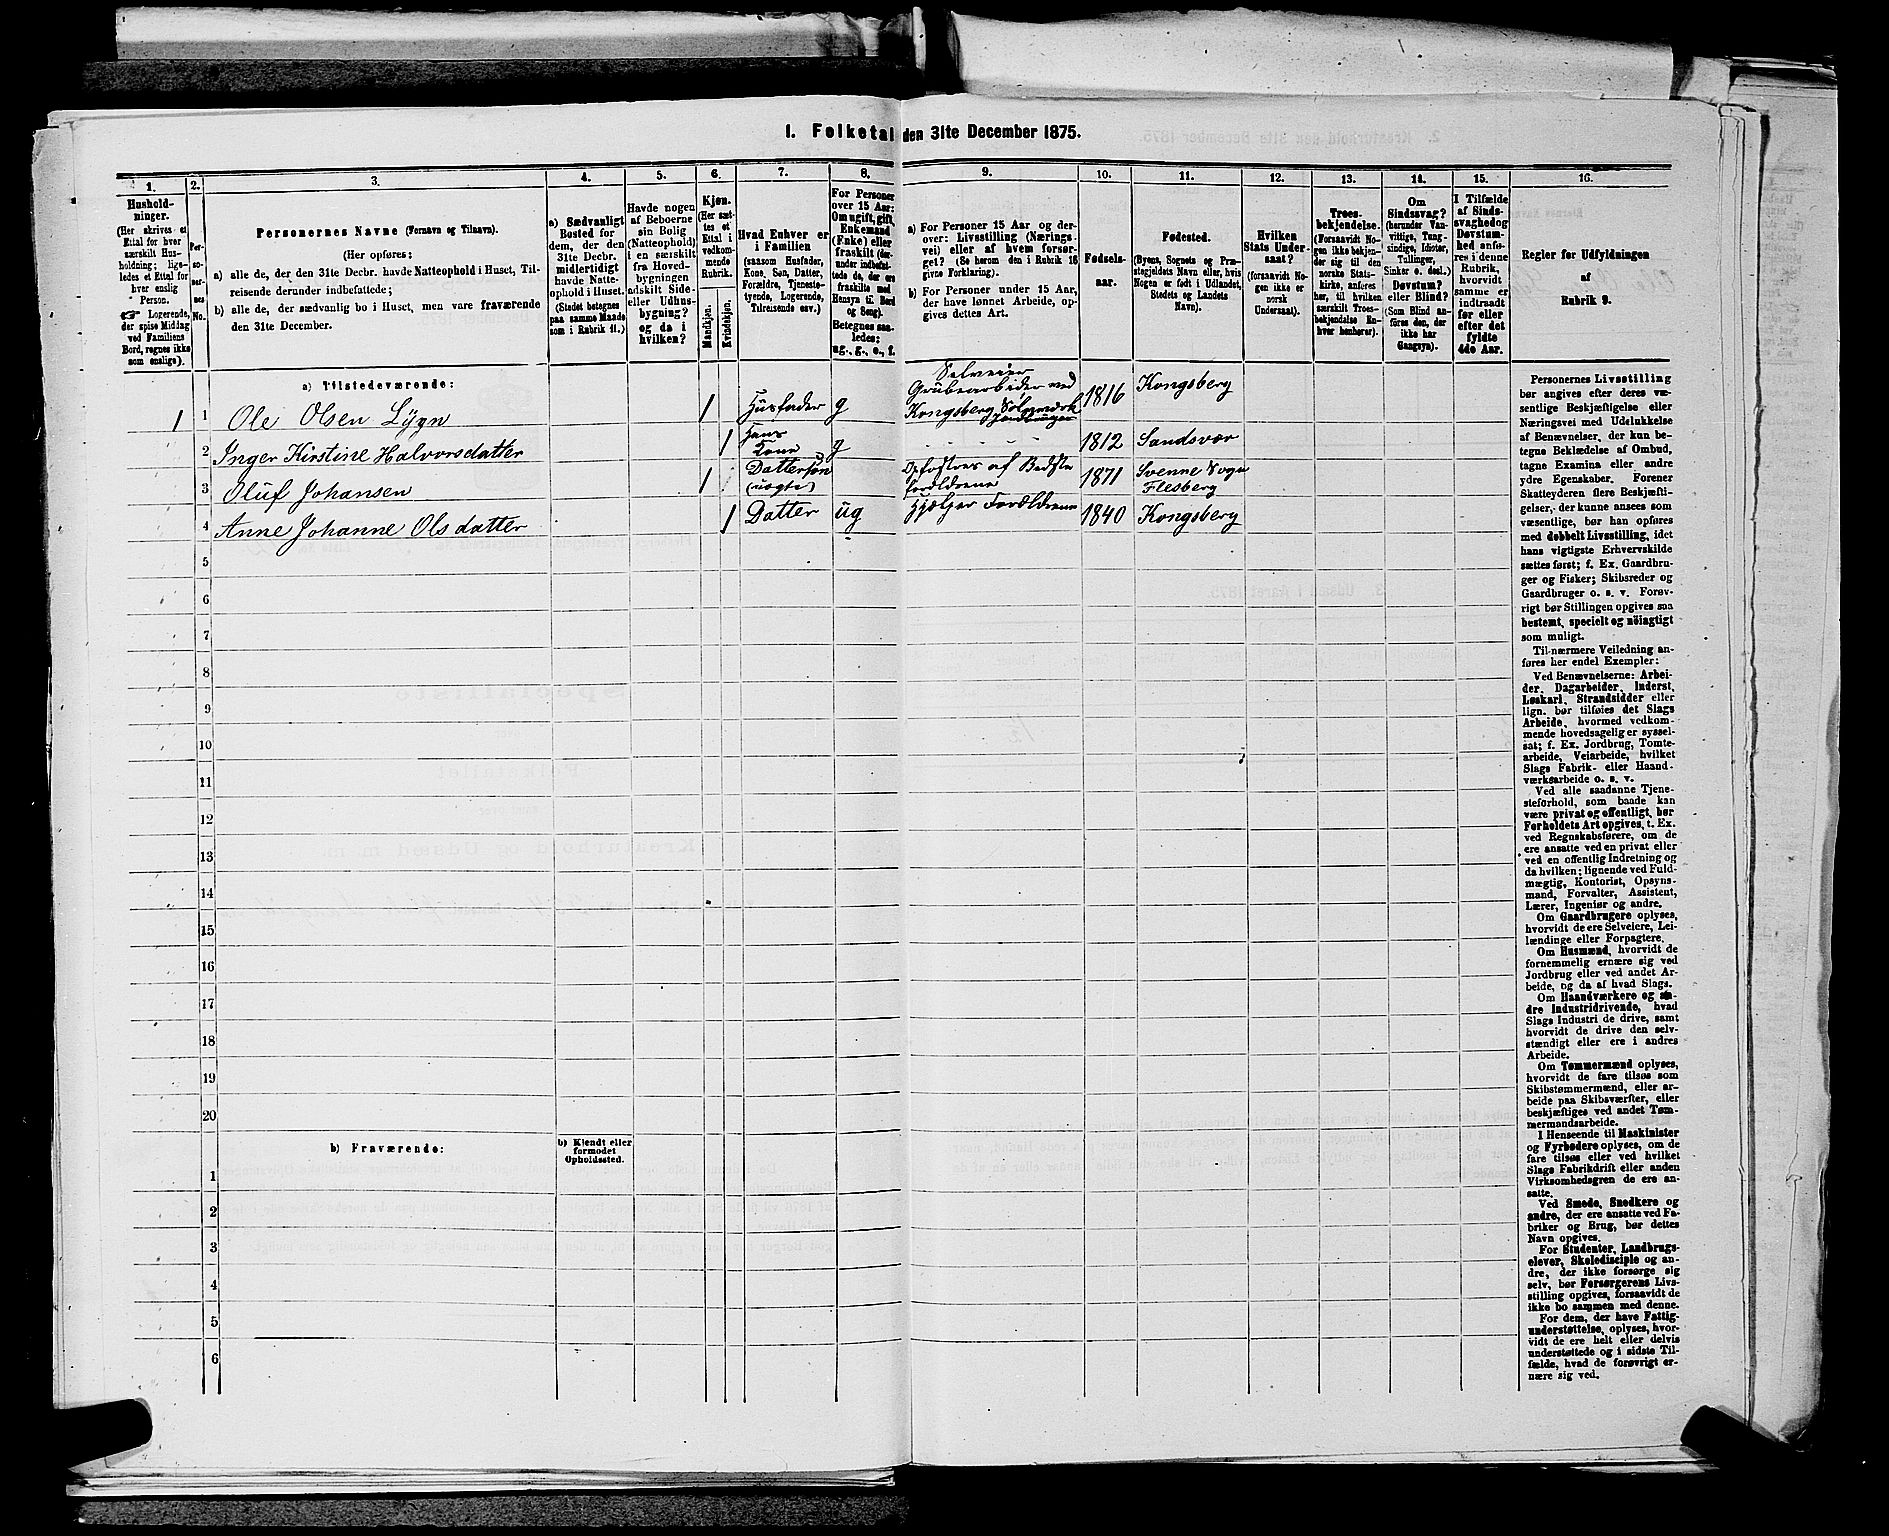 1. Folketal den 31te December 1875.
1.
2.
3.
4.
5.
6.
7.
8.
9.
10.
11.
12.
13.
14.
15.
16.
Hushold-
ninger.
(Her skrives et
Ettal for hver
særskilt Hus-
holdning; lige-
ledes et Ettal for
hver enslig
Person.
☞ Logerende,
der spise Middag
ved Familiens
Bord, regnes ikke
som enslige).
Per-
so-
ner-
nes
No.
Personernes Navne (Fornavn og Tilnavn).
(Her opføres:
a) alle de, der den 31te Decbr. havde Natteophold i Huset, Til-
reisende derunder indbefattede;
b) alle de, der sædvanlig bo i Huset, men vare fraværende
den 31te December.
a) Sædvanligt
Bosted for
dem, der den
31te Decbr.
midlertidigt
havde Natte-
ophold i Huset.
(Stedet betegnes
paa samme Maade
som i Rubrik 11.)
Havde nogen
af Beboerne
sin Bolig
(Natteophold)
i en særskilt
fra Hoved-
bygningen
adskilt Side-
eller Udhus-
bygning?
og da i
hvilken?
Kjøn.
(Her sæt-
tes et
Ettal i
vedkom-
mende
Rubrik.
Mandkjøn.
Kvindekjøn.
Hvad Enhver er
i Familien
(saasom Husfader,
Kone, Søn, Datter,
Forældre, Tjeneste-
tyende, Logerende,
Tilreisende osv.)
For Personer
over 15 Aar:
Om ugift, gift,
Enkemand
(Enke) eller
fraskilt (der-
under indbefat-
tede de, der ere
fraskilte med
Hensyn til Bord
og Seng).
Betegnes saa-
ledes:
ug., g., e., f.
a) For Personer 15 Aar og der-
over: Livsstilling (Nærings-
vei) eller af hvem forsør-
get? (Se herom den i Rubrik 16
givne Forklaring).
b) For Personer under 15 Aar,
der have lønnet Arbeide, op-
gives dettes Art.
Fødsels-
aar.
Fødested.
(Byens, Sognets og Præ-
stegjeldets Navn eller, hvis
Nogen er født i Udlandet,
Stedets og Landets
Navn).
Hvilken
Stats Under-
saat?
(forsaavidt No-
gen ikke er
norsk
Undersaat).
Troes-
bekjendelse.
(Forsaavidt No-
gen ikke bekjen-
der sig til den
norske Stats-
kirke, anføres
her, til hvilken
særskilt Troes-
bekjendelse En-
hver henhører).
Om
Sindssvag?
(herunder Van-
vittige, Tung-
sindige, Idioter,
Tullinger,
Sinker o. desl.)
Døvstum?
eller Blind?
(Som Blind an-
føres den, der
ikke har
Gangsyn).
I Tilfælde
af Sinds-
svaghed og
Døvstum-
hed anfø-
res i denne
Rubrik,
hvorvidt
samme er
indtraadt
før eller
efter det
fyldte
4de Aar.
Regler for Udfyldningen
af
Rubrik 9.
a) Tilstedeværende:
1 1 Ole Olsen Lÿgn 1 Husfader g Selveier Grubearbeider ved Kongsberg Sølvværk 1816 Kongsberg
2 Inger Kirstine Halvorsdatter 1 Hans Kone g 1812 Sandsvær
3 Oluf Johansen 1 Dattersøn (uægte) Opfostres af Bedste forældrene 1871 Svenne Sogn Flesberg
4 Anne Johanne Olsdatter 1 Datter ug Hjælper Forældrene 1840 Kongsberg
5
6
7
8
9
10
11
12
13
14
15
16
17
18
19
20
b) Fraværende:
b) Kjendt eller
formodet
Opholdssted.
1
2
3
4
5
6
Personernes Livsstilling
bør angives efter deres væ-
sentlige Beskjæftigelse eller
Næringsvei med Udelukkelse
af Benævnelser, der kun be-
tegne Beklædelse af Ombud,
tagne Examina eller andre
ydre Egenskaber. Forener
Skatteyderen flere Beskjæfti-
gelser, der kunne ansees som
væsentlige, bør han opføres
med dobbelt Livsstilling, idet
hans vigtigste Erhvervskilde
sættes først; f. Ex. Gaardbru-
ger og Fisker; Skibsreder og
Gaardbruger o. s. v. Forøv-
rigt bør Stillingen opgives saa
bestemt, specielt og nöiagtigt
som muligt.
Til nærmere Veiledning an-
føres her endel Exempler:
Ved Benævnelserne: Arbei-
der, Dagarbeider, Inderst,
Løskarl, Strandsidder eller
lign. bør tilføies det Slags
Arbeide, hvormed vedkom-
mende hovedsagelig er syssel-
sat; f. Ex. Jordbrug, Tomte-
arbeide, Veiarbeide, hvilket
Slags Fabrik- eller Haand-
værksarbeide o. s. v.
Ved alle saadanne Tjene-
steforhold, som baade kan
være privat og offentligt, bør
Forholdets Art opgives, t. Ex.
ved Regnskabsførere, om de
ere ansatte ved en privat eller
ved en offentlig Indretning og
da hvilken; lignende ved Fuld-
mægtig, Kontorist, Opsyns-
mand, Forvalter, Assistent,
Lærer, Ingeniør og andre.
Om Gaardbrugere oplyses,
hvorvidt de ere Selveiere, Lei-
lændinge eller Forpagtere.
Om Husmænd, hvorvidt de
fornemmelig ernære sig ved
Jordbrug eller ved andet Ar-
beide, og da af hvad Slags.
Om Haandværkere og an-
dre Industridrivende, hvad
Slags Industri de drive, samt
hvorvidt de drive den selv-
stændigt eller ere i andres
Arbeide.
Om Tømmermænd oplyses,
hvorvidt de fare tilsøs som
Skibstømmermænd, eller ar-
beide paa Skibsværfter, eller
beskjæftiges ved andet Tøm-
mermandsarbeide.
I Henseende til Maskinister
og Fyrbødere oplyses, om de
fare tilsøs eller ved hvilket
Slags Fabrikdrift eller anden
Virksomhedsgren de ere an-
satte.
Ved Smede, Snedkere og
andre, der ere ansatte ved Fa-
briker og Brug, bør dettes
Navn opgives.
For Studenter, Landbrugs-
elever, Skoledisciple og an-
dre, der ikke forsørge sig
selv, bør Forsørgerens Livs-
stilling opgives, forsaavidt de
ikke bo sammen med denne.
For dem, der have Fattig-
understøttelse, oplyses, hvor-
vidt de ere helt eller delvis
understøttede og i sidste Til-
fælde, hvad de forøvrigt er-
nære sig ved.